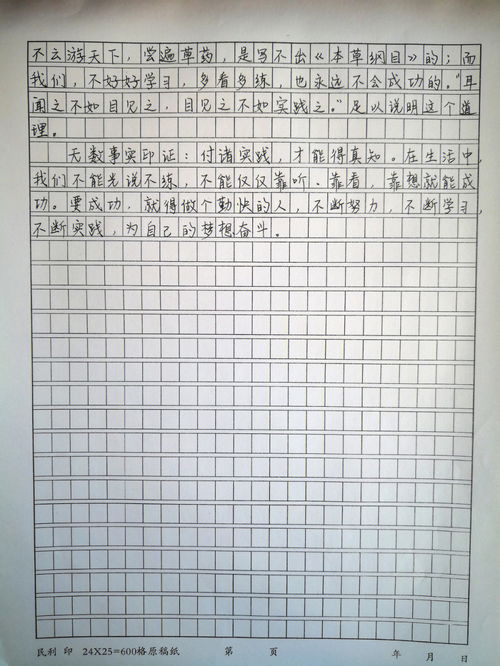 不云游天下，尝遍草药，是写不出《本草纲目》的；而
我们，不好好学习，多看多练，也永远不会成功的。“耳
闻之不如目见之，目见之不如实践之。”足以说明这个道
理。
无数事实印证：付诸实践，才能得真知。在生活中，
我们不能光说不练，不能仅仅靠听、靠看，靠想就能成
功。要成功，就得做个勤快的人，不断努力，不断学习，
不断实践，为自己的梦想奋斗。
民利 印 24X25=600格原稿纸 第 页 年 月 日